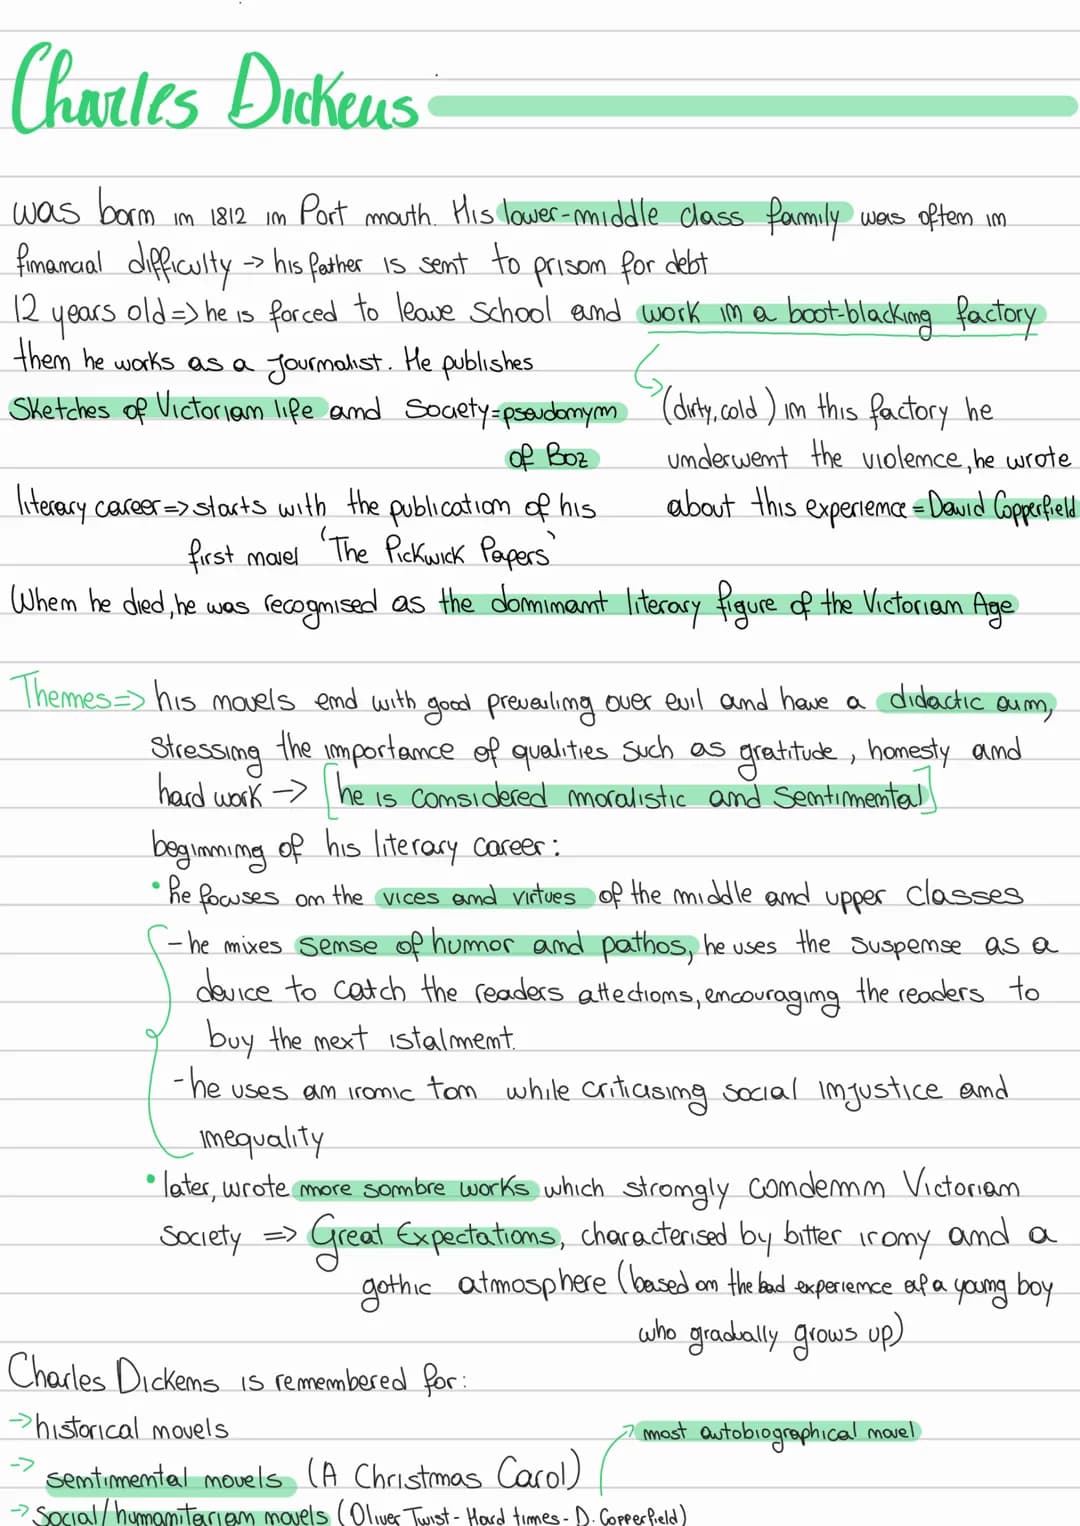 Charles Dickens
was born in 1812 in Port mouth. His lower-middle class family was often in
financial difficulty -> his father is sent to prison for debt
12 years old => he is forced to leave school and work in a boot-blacking factory
then he works as a Journalist. He publishes
Sketches of Victorian life and Society = pseudonym
of Boz
(dirty, cold) in this factory he
underwent the violence, he wrote
about this experience = David Copperfield
literary career => starts with the publication of his
first novel 'The Pickwick Papers'
When he died, he was recognised as the dominant literary figure of the Victorian Age
Themes => his novels end with good prevailing over evil and have a didactic aim,
stressing the importance of qualities such as gratitude, honesty and
hard work -> [he is considered moralistic and sentimental]
beginning of his literary career:
• he focuses on the vices and virtues of the middle and upper classes
- he mixes sense of humor and pathos, he uses the suspense as a
device to catch the readers attections, encouraging the readers to
buy the next istalment.
- he uses an ironic ton while criticising social injustice and
inequality
• later, wrote more sombre works which strongly condemn Victorian
Society => Great Expectations, characterised by bitter irony and a
gothic atmosphere (based on the bad experience of a young boy
who gradually grows up)
Charles Dickens is remembered for:
-> historical novels
-> sentimental novels (A Christmas Carol)
-> most autobiographical novel
-> Social/humanitarian novels (Oliver Twist - Hard times - D. Copperfield)